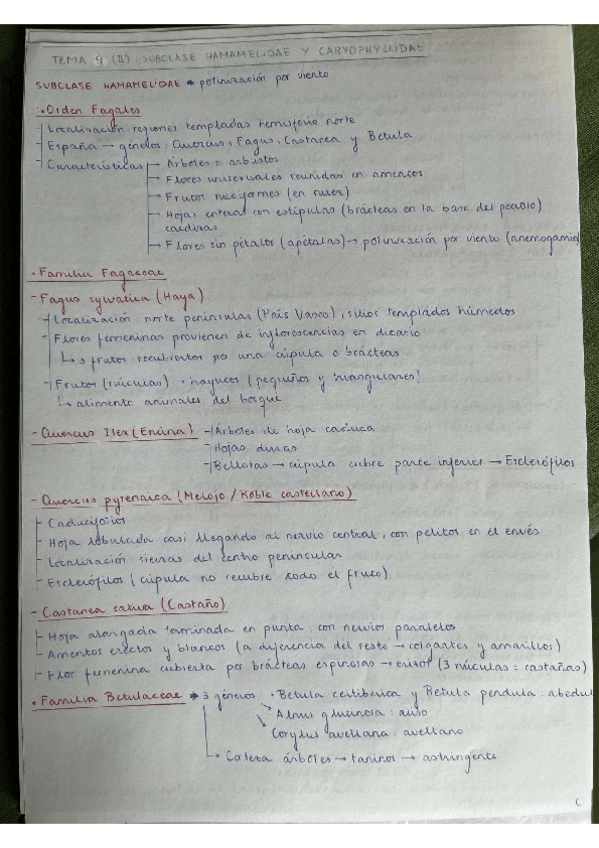 TEMA 9 (II): SUBCLASE HAMAMELIDAE Y CARYOPHYLLIDAE
SUBCLASE HAMAMELIDAE → polinización por viento
• Orden Fagales
Localización: regiones templadas hemisferio norte
España → géneros: Quercus, Fagus, Castanea y Betula
Características
Árboles o arbustos
Flores unisexuales reunidas en amentos
Frutos nuciformes (en nuez)
Hojas enteras con estípulas (brácteas en la base del peciolo)
caedizas
Flores sin pétalos (apétalas) → polinización por viento (anemogamia)
• Familia Fagaceae
- Fagus sylvatica (Haya)
Localización: norte peninsular (País Vasco), sitios templados húmedos
Flores femeninas provienen de inflorescencias en dicasio
↳ 3 frutos recubiertos por una cúpula o brácteas
Frutos (núculas): hayucos (pequeños y triangulares)
↳ alimento animales del bosque
- Quercus Ilex (Encina)
Árboles de hoja caduca
Hojas duras
Bellotas → cúpula cubre parte inferior → Esclerófilos
- Quercus pyrenaica (Melojo / Roble castellano)
Caducifolios
Hoja lobulada casi llegando al nervio central, con pelitos en el envés
Localización: sierras del centro peninsular
Esclerófilos (cúpula no recubre todo el fruto)
- Castanea sativa (Castaño)
Hoja alargada terminada en punta, con nervios paralelos
Amentos erectos y blancos (a diferencia del resto → colgantes y amarillos)
Flor femenina cubierta por brácteas espinosas → erizo (3 núculas = castañas)
• Familia Betulaceae → 3 géneros • Betula celtiberica y Betula pendula: abedul
Alnus glutinosa: aliso
Corylus avellana: avellano
↳ Corteza árboles → taninos → astringente